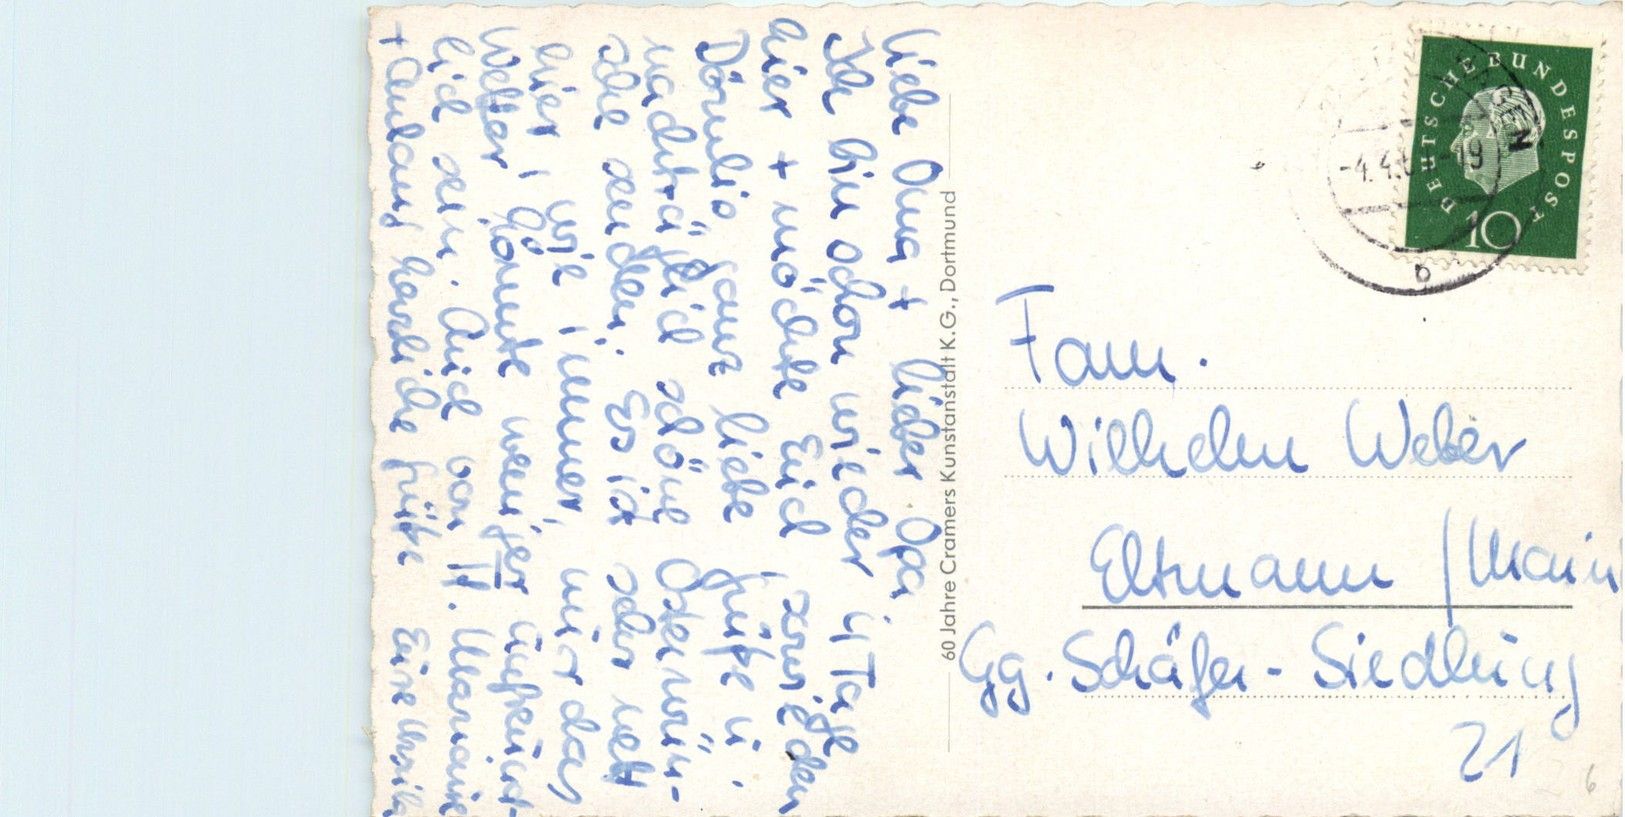 Liebe Oma + lieber Opa
Ich bin schon wieder 4 Tage
hier + möchte Euch
ganz liebe Grüße u.
nachträglich schöne Osterwün-
sche senden. Es ist sehr nett
hier, wie immer, nur das
Wetter könnte weniger
sein. Auch von
+ Anhang herzliche Grüße Eure
60 Jahre Cramers Kunstanstalt K.G., Dortmund
DEUTSCHE BUNDESPOST
10
-4.4.6 -19
b
Fam.
Wilhelm Weber
Eltmann /Main
Gg. Schäfer-Siedlung
21
6